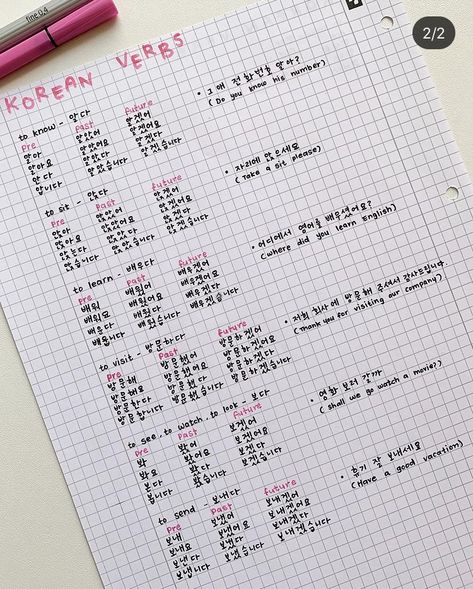 fine 0.4
2/2
KOREAN VERBS
to know - 알다
Pre Past future
알아 알았어 알겠어
알아요 알았어요 알겠어요
알다 알았다 알겠다
압니다 알았습니다 알겠습니다
• 그 애 전화번호 알아?
(Do you know his number)
to sit - 앉다
Pre Past future
앉아 앉았어 앉겠어
앉아요 앉았어요 앉겠어요
앉는다 앉았다 앉겠다
앉습니다 앉았습니다 앉겠습니다
• 자리에 앉으세요
(Take a sit please)
to learn - 배우다
Pre Past future
배워 배웠어 배우겠어
배워요 배웠어요 배우겠어요
배운다 배웠다 배우겠다
배웁니다 배웠습니다 배우겠습니다
• 어디에서 영어를 배우셨어요?
(where did you learn English)
to visit - 방문하다
Pre Past future
방문해 방문했어 방문하겠어
방문해요 방문했어요 방문하겠어요
방문한다 방문했다 방문하겠다
방문합니다 방문했습니다 방문하겠습니다
• 저희 회사에 방문해 주셔서 감사드립니다
(Thank you for visiting our company)
to see, to watch, to look - 보다
Pre Past future
봐 봤어 보겠어
봐 봤어요 보겠어요
본다 봤다 보겠다
봅니다 봤습니다 보겠습니다
• 영화 보러 갈까
(shall we go watch a movie?)
to send - 보내다
Pre Past future
보내 보냈어 보내겠어
보내요 보냈어요 보내겠어요
보낸다 보냈다 보내겠다
보냅니다 보냈습니다 보내겠습니다
• 휴가 잘 보내세요
(Have a good vacation)